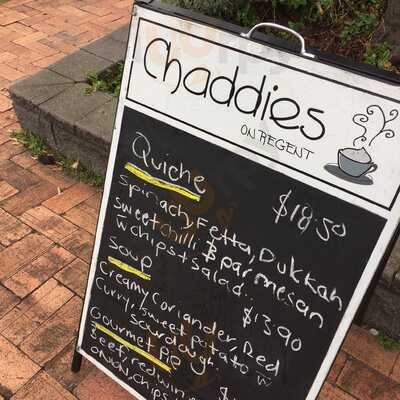 Chaddies
ON REGENT
Quiche $18.50
Spinach, Fetta, Dukkah
sweet chilli & parmesan
w chips + salad..
Soup $13.90
Creamy, Coriander, Red
Curry, Sweet potato w
sourdough.
Gourmet pie
Beef, red wine
onion, chips